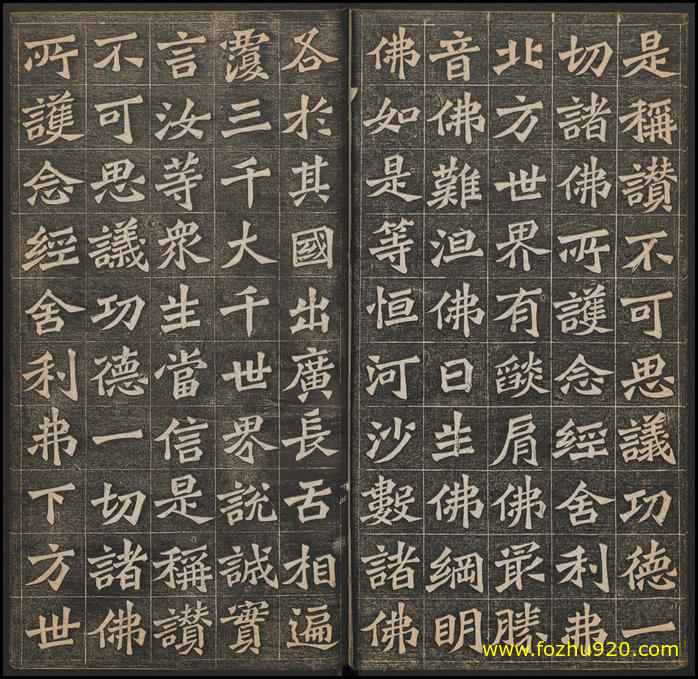 是稱讃不可思議功德一
切諸佛所護念經舍利弗
北方世界有燄肩佛最勝
音佛難沮佛日生佛網明
佛如是等恒河沙數諸佛
各於其國出廣長舌相遍
覆三千大千世界說誠實
言汝等衆生當信是稱讃
不可思議功德一切諸佛
所護念經舍利弗下方世
www.fozhu920.com